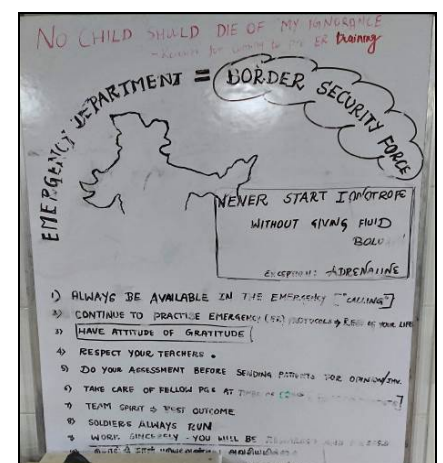 NO CHILD SHOULD DIE OF MY IGNORANCE
training
EMERGENCY DEPARTMENT = BORDER SECURITY FORCE
NEVER START IONOTROPE
WITHOUT GIVING FLUID
BOLU
EXCEPTION: ADRENALINE
1) ALWAYS BE AVAILABLE IN THE EMERGENCY ["CALLING"]
2) CONTINUE TO PRACTISE EMERGENCY (ER) PROTOCOLS → REST OF YOUR LIFE
3) HAVE ATTITUDE OF GRATITUDE
4) RESPECT YOUR TEACHERS.
5) DO YOUR ASSESSMENT BEFORE SENDING PATIENTS FOR OPINION/INV.
6) TAKE CARE OF FELLOW PGS AT
7) TEAM SPIRIT → BEST OUTCOME
8) SOLDIERS ALWAYS RUN
9 WORK SINCERELY - YOU WILL BE